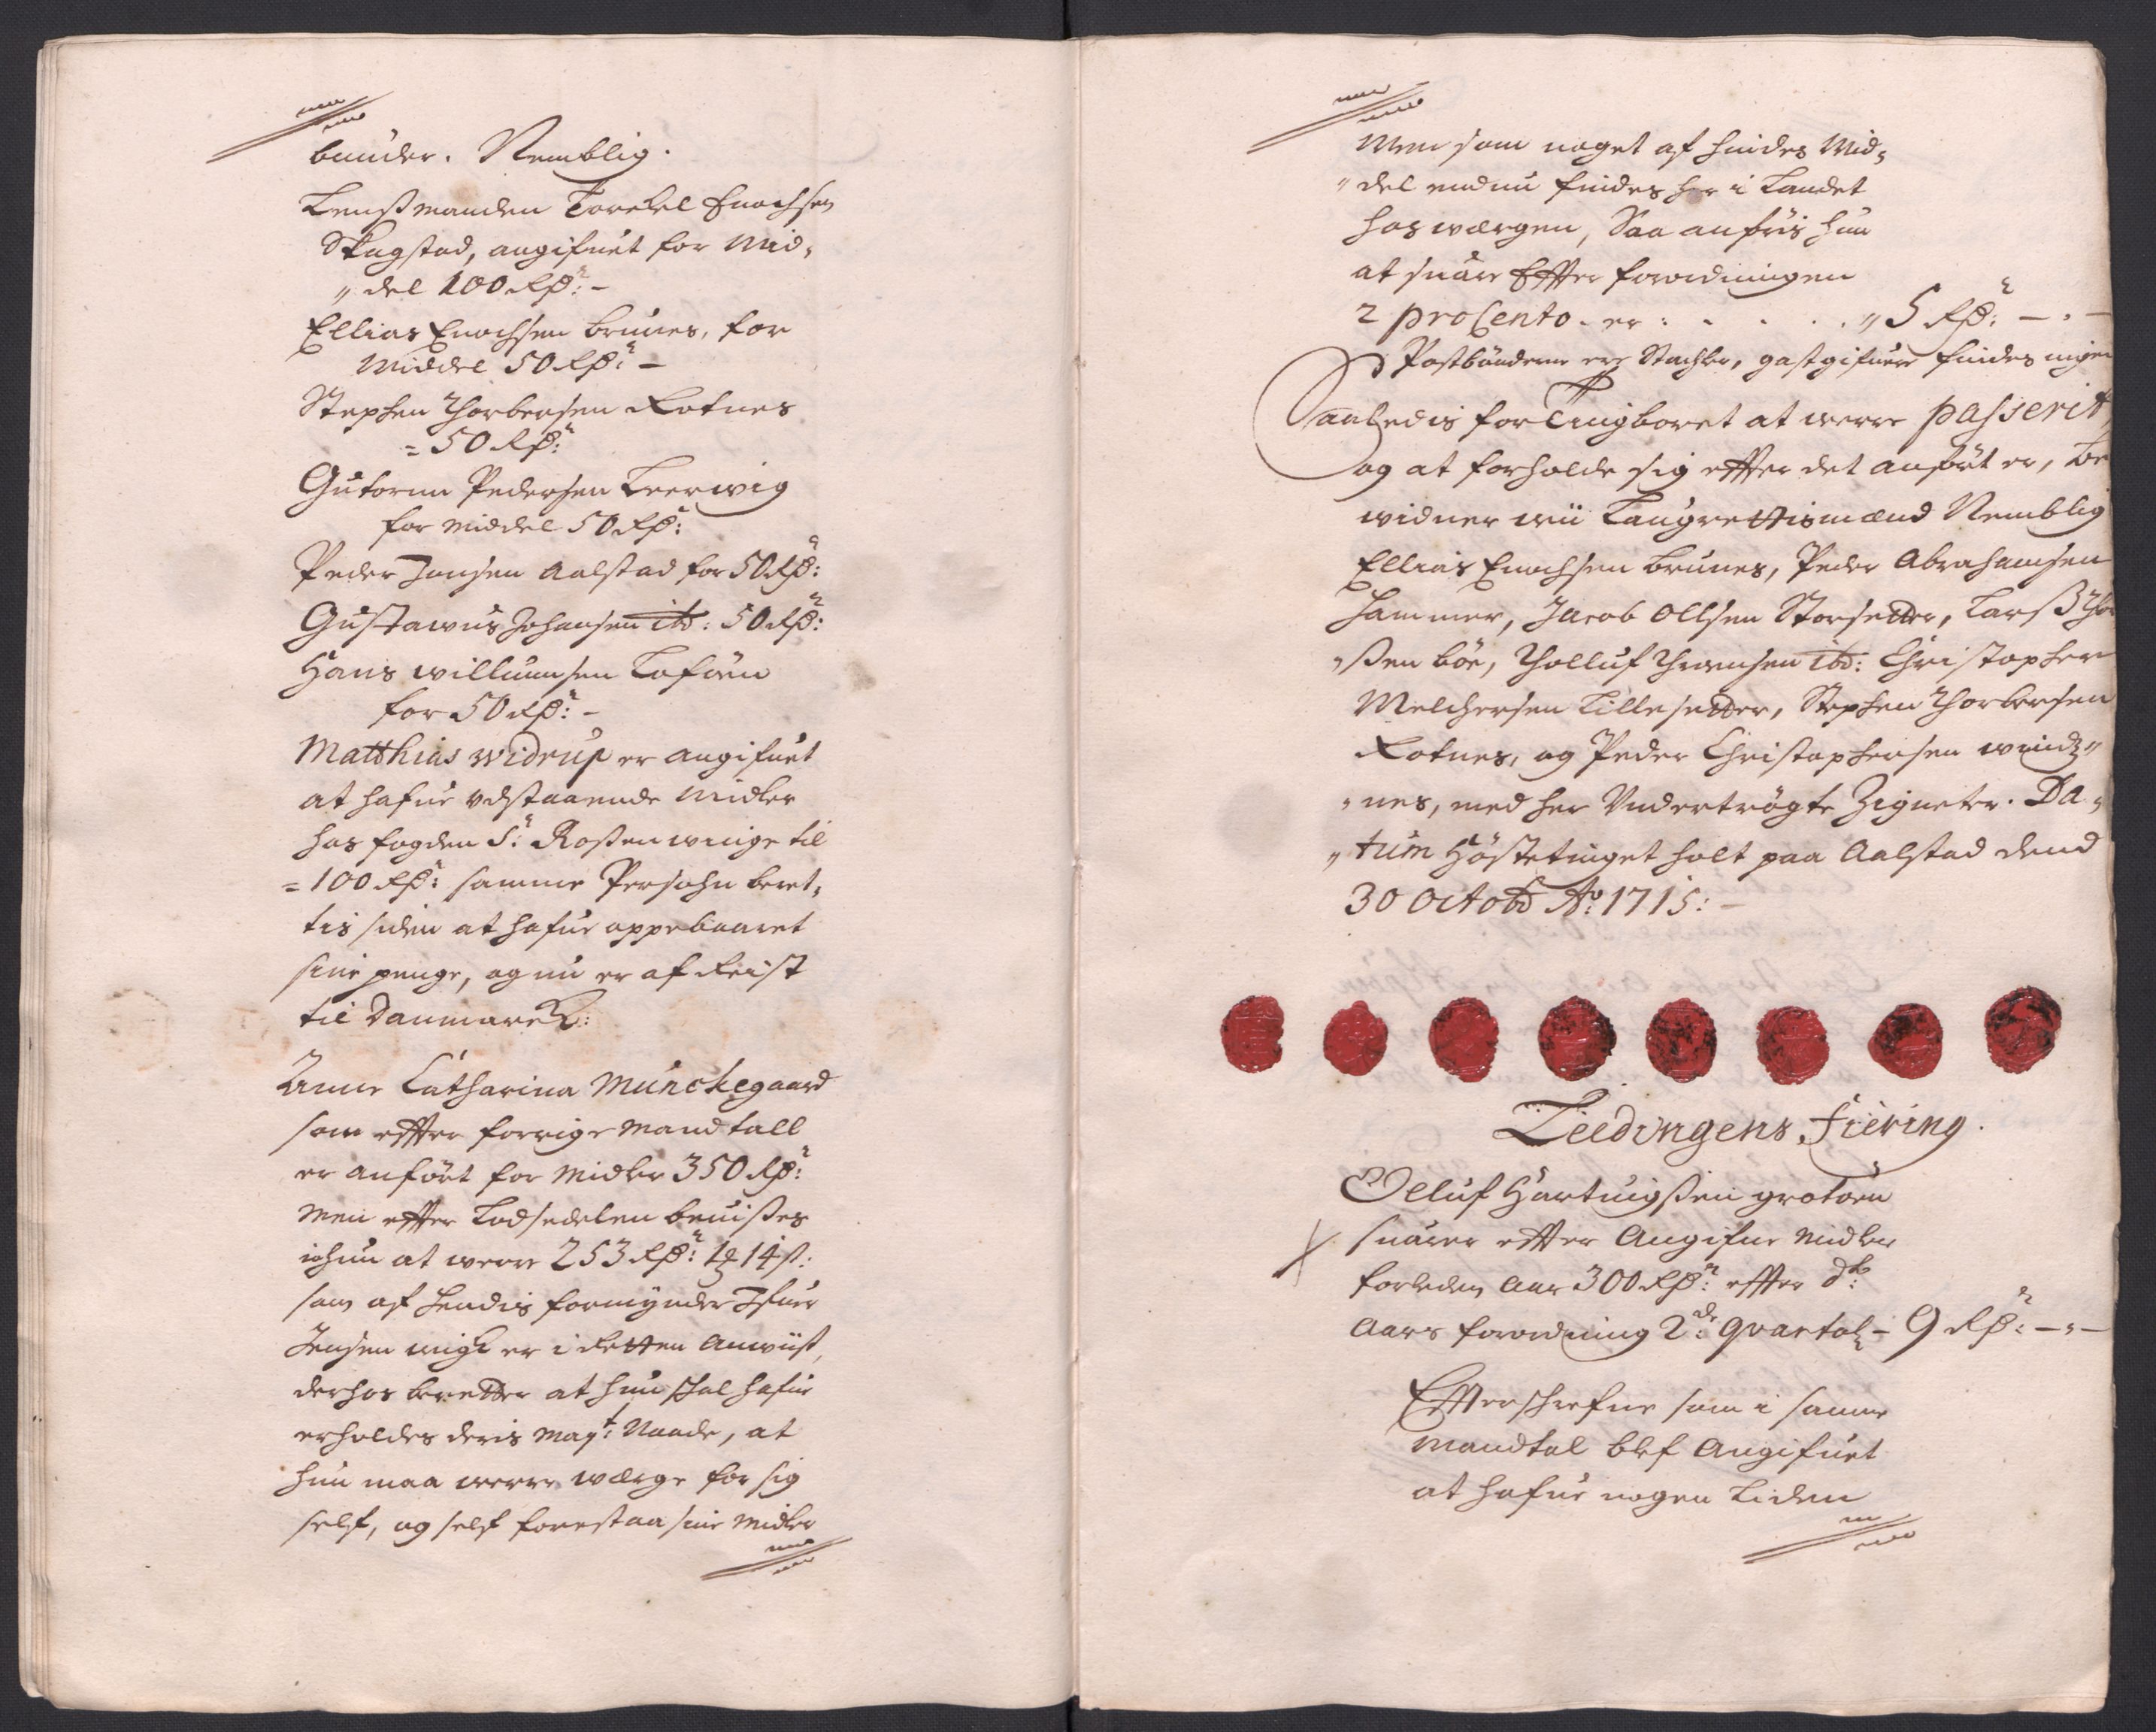 bunder. Nemblig.
Lensmanden Torchel Enochsen
Skagstad, angifuet for Mid,
"del 100 Rd:r -
Ellias Enochsen Brunes, for
Middel 50 Rd:r -
Stephen Thorbersen Kotnes
= 50 Rd:r
Gutorm Pedersen Leerwig
for Middel 50 Rd:r
Peder Jonsen Aalstad for 50 Rd:r
Gustavus Johansen ibd: 50 Rd:r
Hans Willumsen Lofoen
for 50 Rd:r -
Matthias Widrup er angifuet
at hafue udstaaende Midler
hos fogden Sr: Rosenwinge til
= 100 Rd:r samme Persohn beret,
tis siden at hafue oppebaaret
sine penge, og nu er af Reist
til Danmarck:
Anne Catharina Munckegaard
som effter forrige Mandtall
er anført for Midler 350 Rd:r
Men effter Lodsedelen beuisses
ichun at werre 253 Rd:r 14 s:
som af hendis formynder Ifuer
Jensen er i Retten anwiist,
derhos beretter at hun schal hafue
erholdes deris May:t Naade, at
hun maa werre werge for sig
self, og self forestaa sine Midler
Men som noget af hindes Mid,
"del endnu findes her i Landet
hos wergen, Saa anføris hun
at suare Effter forordningen
2 proCento. er: . . . . " 5 Rd:r - " -
Postbønderne ere, gastgifuere findes ingen
Saaledis for Tingboret at werre passerit,
og at forholde sig effter det anført er, be
widner wii Laugrettismænd Nemblig
Ellias Enochsen Brunes, Peder Abrahamsen
Hammer, Jacob Ollsen Storsetter, Larss
"ssen Bøe, Tholluf ibd: Christopher
Melchersen Lillesetter, Stephen Thorbersen
Kotnes, og Peder Christophersen Windz"
"nes, med her Undertrøgte Zigneter. Da"
"tum Høstetinget holt paa Aalstad dend
30 Octobr Ao: 1715: -
Leedingens Fiering.
Olluf Hartuigssen Grotøen
suarer effter Angifne Midler
forleden Aar 300 Rd:r effter do:
Aars forordning 2de: Qvartal - 9 Rd:r - " -
Effterschrefne som i samme
Mandtal blef Angifuet
at hafue nogen Liden